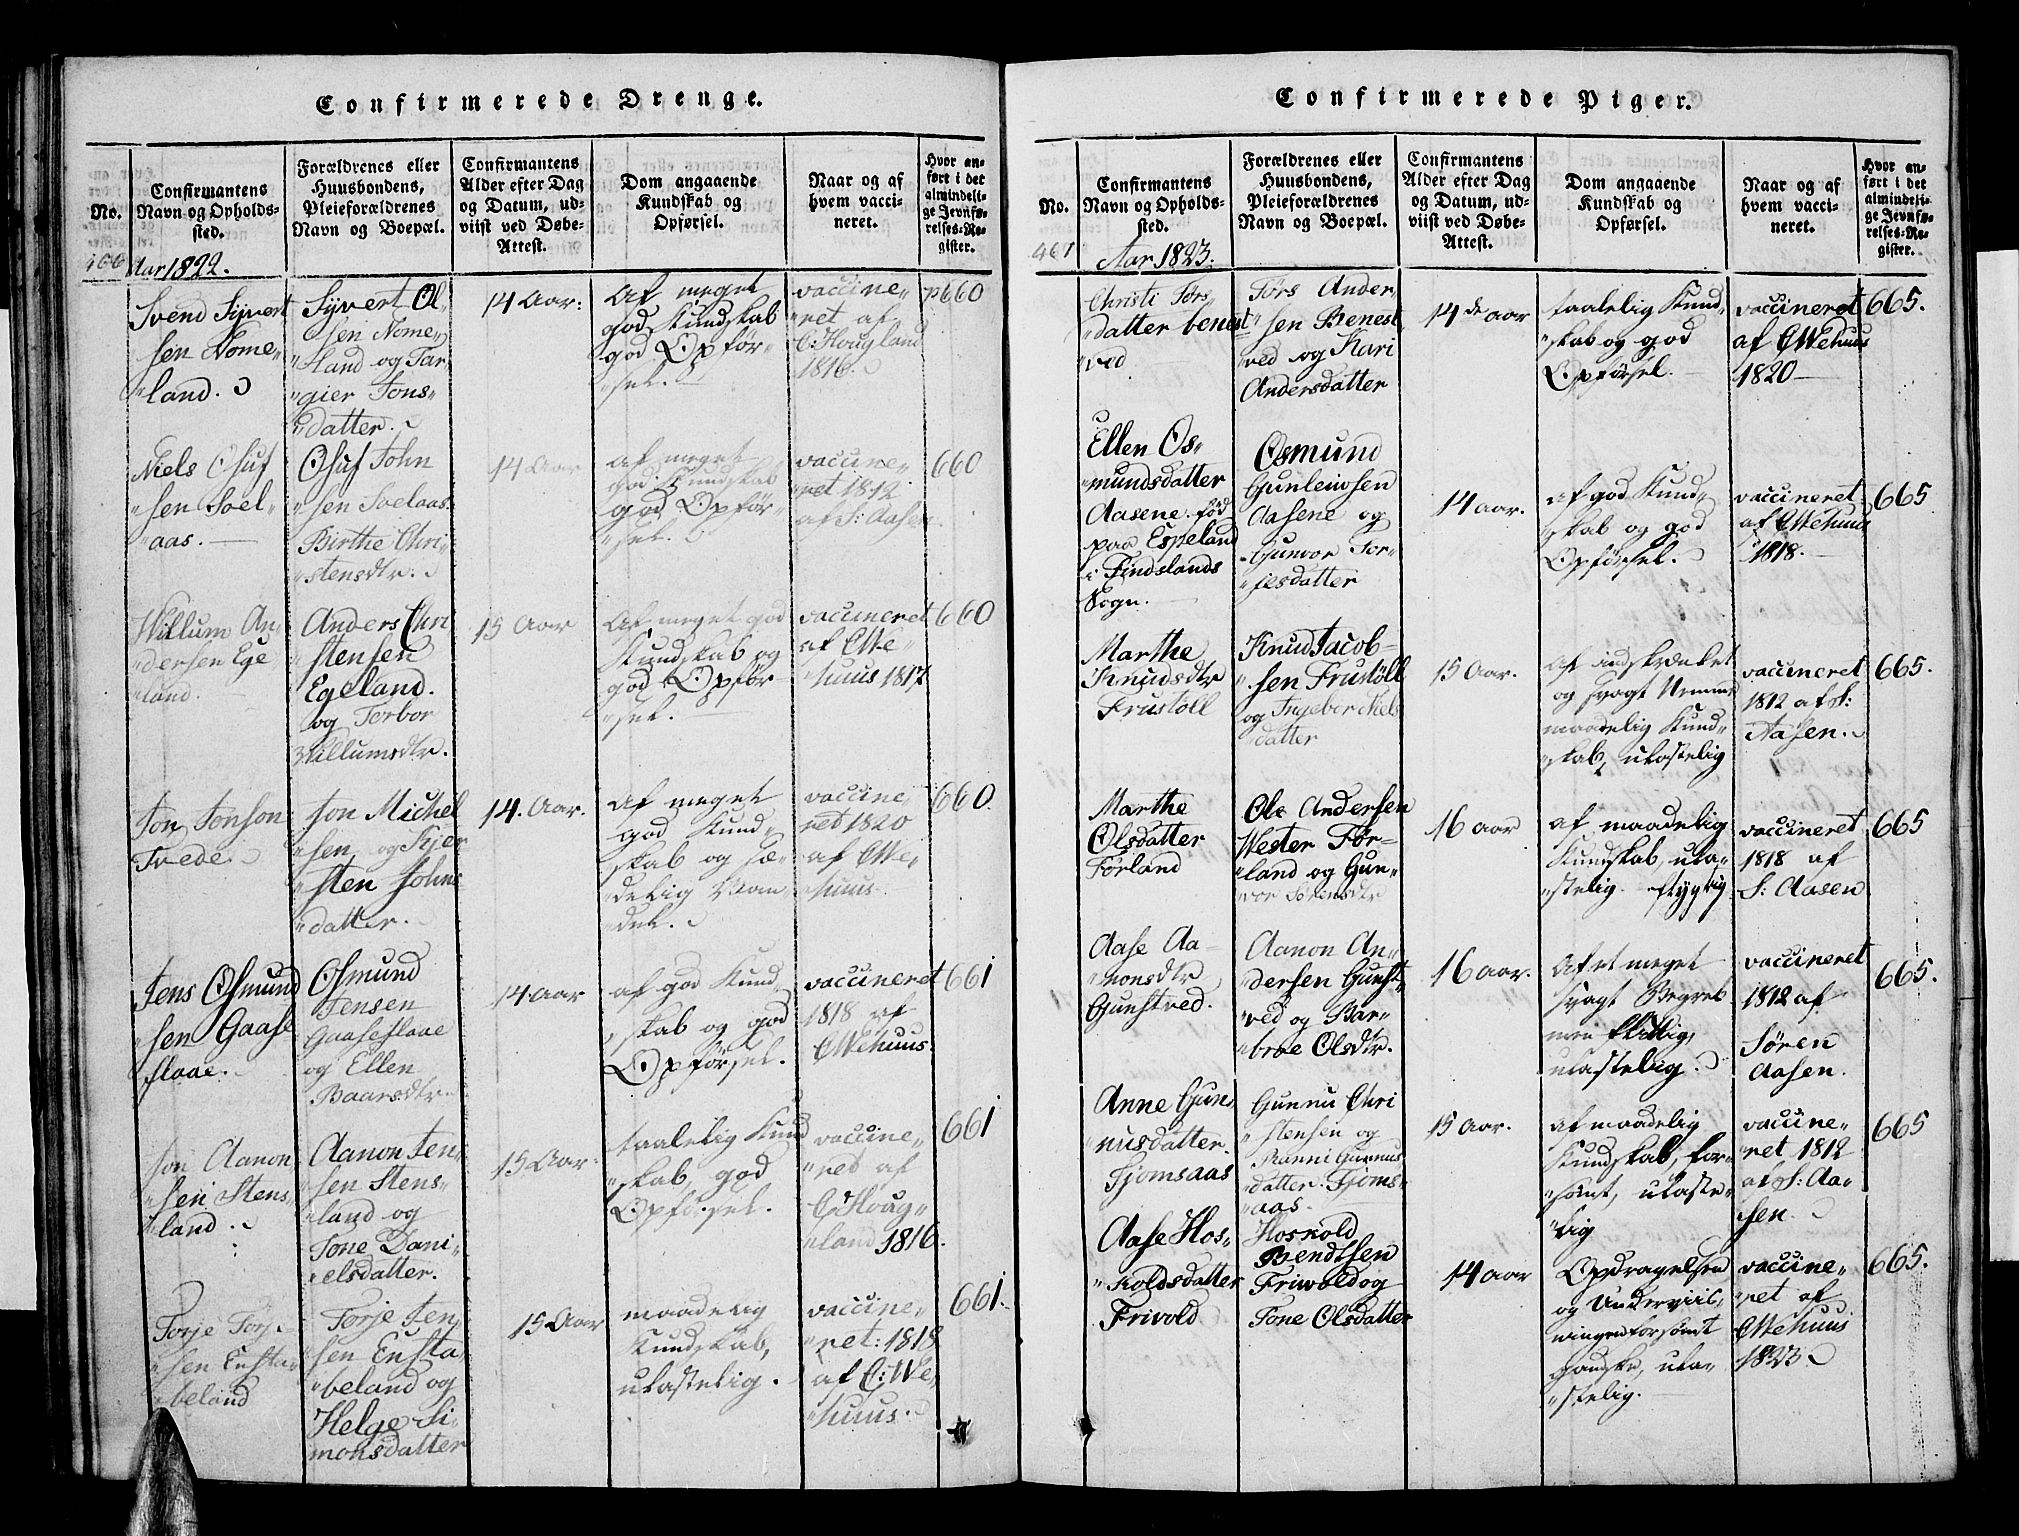 Confirmerede Drenge.
No.
Confirmantens
Navn og Opholds-
sted.
Forældrenes eller
Huusbondens,
Pleieforældrenes
Navn og Boepæl.
Confirmantens
Alder efter Dag
og Datum, ud-
viist ved Døbe-
Attest.
Dom angaaende
Kundskab og
Opførsel.
Naar og af
hvem vacci-
neret.
Hvor an-
ført i det
almindeli-
ge Jevnfø-
relses-Re-
gister.
466
Aar 1822.
Svend Syvert
"sen Nome"
"land.
Syvert Ol"
"sen Nome"
"land og Tar"
"gier Tons"
"datter.
14 Aar.
Af meget
god Kundskab
god Opfør"
"sel.
vaccine"
"ret af
C: Hougland
1816.
p660
Niels Osuf
"sen Soel"
"aas.
Osuf John
"sen Soelaas
Birthe Chri"
"stensdtr.
14 Aar
af meget
god Kundskab
god Opfør"
"sel.
vaccine"
"ret 1812
af S: Aasen
660
Willum An"
"dersen Ege
"land.
Anders Chri
"stensen
Egeland.
og Torbor
Willumsdtr.
15 Aar
Af meget god
Kundskab og
god Opfør
"sel.
vaccineret
af C We"
"huus 1817
660
Jon Jonson
Tvede.
Jon Michel
"sen og Kjer
"sten Johns
"datter.
14. Aar.
af meget
god Kund"
skab og sæ"
"delig Van"
"del.
vaccine"
"ret 1820
af C We"
"huus.
660.
Jens Osmund
"sen Gaase
flaae.
Osmund
Jensen
Gaaseflaae
og Ellen
Baarsdtr.
14 Aar
af god Kund"
"skab og god
Opførsel.
vaccineret
1818 af
C Wehuus.
661
Jon Aanon
"sen Stens"
"land.
Aanon Jen"
"sen Stens"
"land og
Tone Dani"
"elsdatter.
15 Aar.
taalelig Kund
"skab, god
Opførsel.
vaccine"
"ret af
C: Houg"
"land 1816.
661
Torje Torj"
"sen Ensta"
"beland
Torje Jen"
"sen Ensta"
"beland og
Helge Si"
monsdatter
15 Aar
maadelig
Kundskab,
ulastelig.
vaccine"
"ret: 1818
af C: We"
"huus.
661.
Confirmerede Piger.
No.
Confirmantens
Navn og Opholds-
sted.
Forældrenes eller
Huusbondens,
Pleieforældrenes
Navn og Boepæl.
Confirmantens
Alder efter Dag
og Datum, ud-
viist ved Døbe-
Attest.
Dom angaaende
Kundskab og
Opførsel.
Naar og af
hvem vacci-
neret.
Hvor an-
ført i det
almindeli-
ge Jevnfø-
relses-Re-
gister.
467
Aar 1823.
Christi Tørs"
"datter benest
"ved
Tørs Ander"
"sen Benest
"ved og Kari
Andersdatter
14 de aar
taalelig Kund"
"skab og god
Opførsel.
vaccineret
af C Wehuus
1820
665.
Ellen Os"
"mundsdatter
Aasene. fød
paa Espeland
i Findslands
Sogn.
Osmund
Gunleivsen
Aasene og
Gunvor Tor"
"jesdatter
14 aar.
af god Kund"
skab og god
Opførsel.
vaccineret
af C Wehuus
1818.
665
Marthe
Knudsdtr
Frustøll
Knud Jacob"
"sen Frustøll
og Ingebor Niels
"datter
15 Aar.
af indskrænket
og svagt Nemme
maadelig Kund"
"skab, ulastelig
vaccineret
1812 af S:
Aasen.
665.
Marthe
Olsdatter
Førland
Ole Andersen
Wester Før"
"land og Gun"
"vor Sørensdtr
16 aar
af maadelig
Kundskab, ula"
"stelig. flygtig
vaccineret
1818 af
S: Aasen
665
Aase Aa"
"nonsdtr
Gunstved.
Aanon An"
"dersen Gunst"
"ved og Bar"
"broe Olsdtr.
16 aar.
Af et meget
svagt Begreb
men flittig,
ulastelig.
vaccineret
1812 af
Søren
Aasen.
665.
Anne Gun"
"nusdatter.
Tjomsaas
Gunnu Chri
"stensen og
Ranni Gunnus
"datter. Tjoms"
"aas.
15 Aar.
af maadelig
Kundskab, for"
"sømt, ulaste"
"lig
vaccine"
"ret 1812
af S: Aa"
"sen.
665
Aase Hos"
"koldsdatter
Frivold
Hoskold
Bendtsen
Friwold og
Tone Olsdatter
14 aar
Opdragelsen
og Underviis"
"ningen forsømt
ganske, ula"
"stelig.
vaccine"
"ret af
C Wehuus
1823
665.